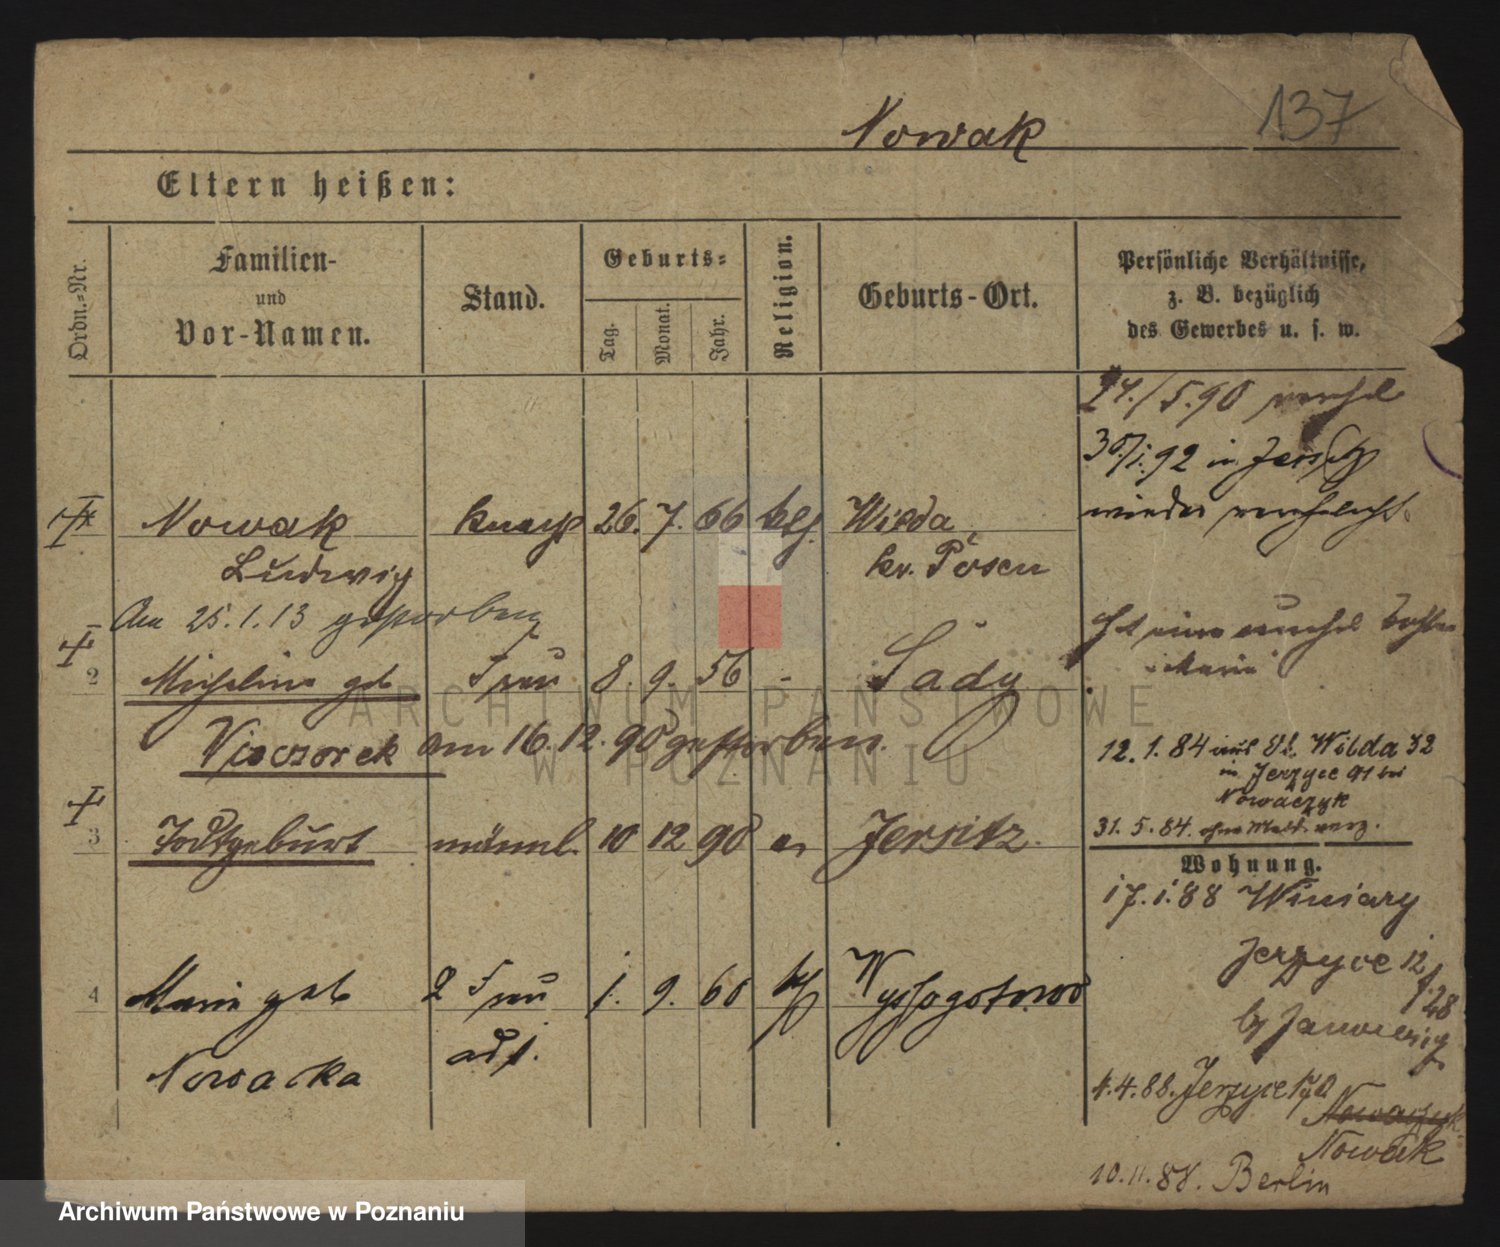 Nowak 137
Eltern heißen:
Ordn.-Nr.
Familien-
und
Vor-Namen.
Stand.
Geburts-
Tag.
Monat.
Jahr.
Religion.
Geburts-Ort.
Persönliche Verhältnisse,
z. B. bezüglich
des Gewerbes u. s. w.
24./5.90 verehel
30/1.92 in Jersitz
wieder verehelicht.
Nowak 26. 7. 66 Wilda
Ludwig kr. Posen
Am 25.1.13 gestorben
2 Micheline geb Frau 8. 9. 56 - Sady
Hat eine unehel Tochter
Marie
Vieczorek am 16.12.90 gestorben.
12.1.84 aus St. Wilda 32
in Jerzyce 91 bei
Nowaczyk
31.5.84. ohne
3 Todtgeburt männl. 10 12 90 Jersitz.
Wohnung.
17.1.88 Winiary
Jerzyce 12
f. 28
by
4 Marie geb 2 Frau 1. 9. 68 Wyssogotowo
Nowacka
4.4.88. Jerzyce 170
Nowaczyk
Nowak
10.11.88. Berlin
ARCHIWUM PAŃSTWOWE
W POZNANIU
Archiwum Państwowe w Poznaniu